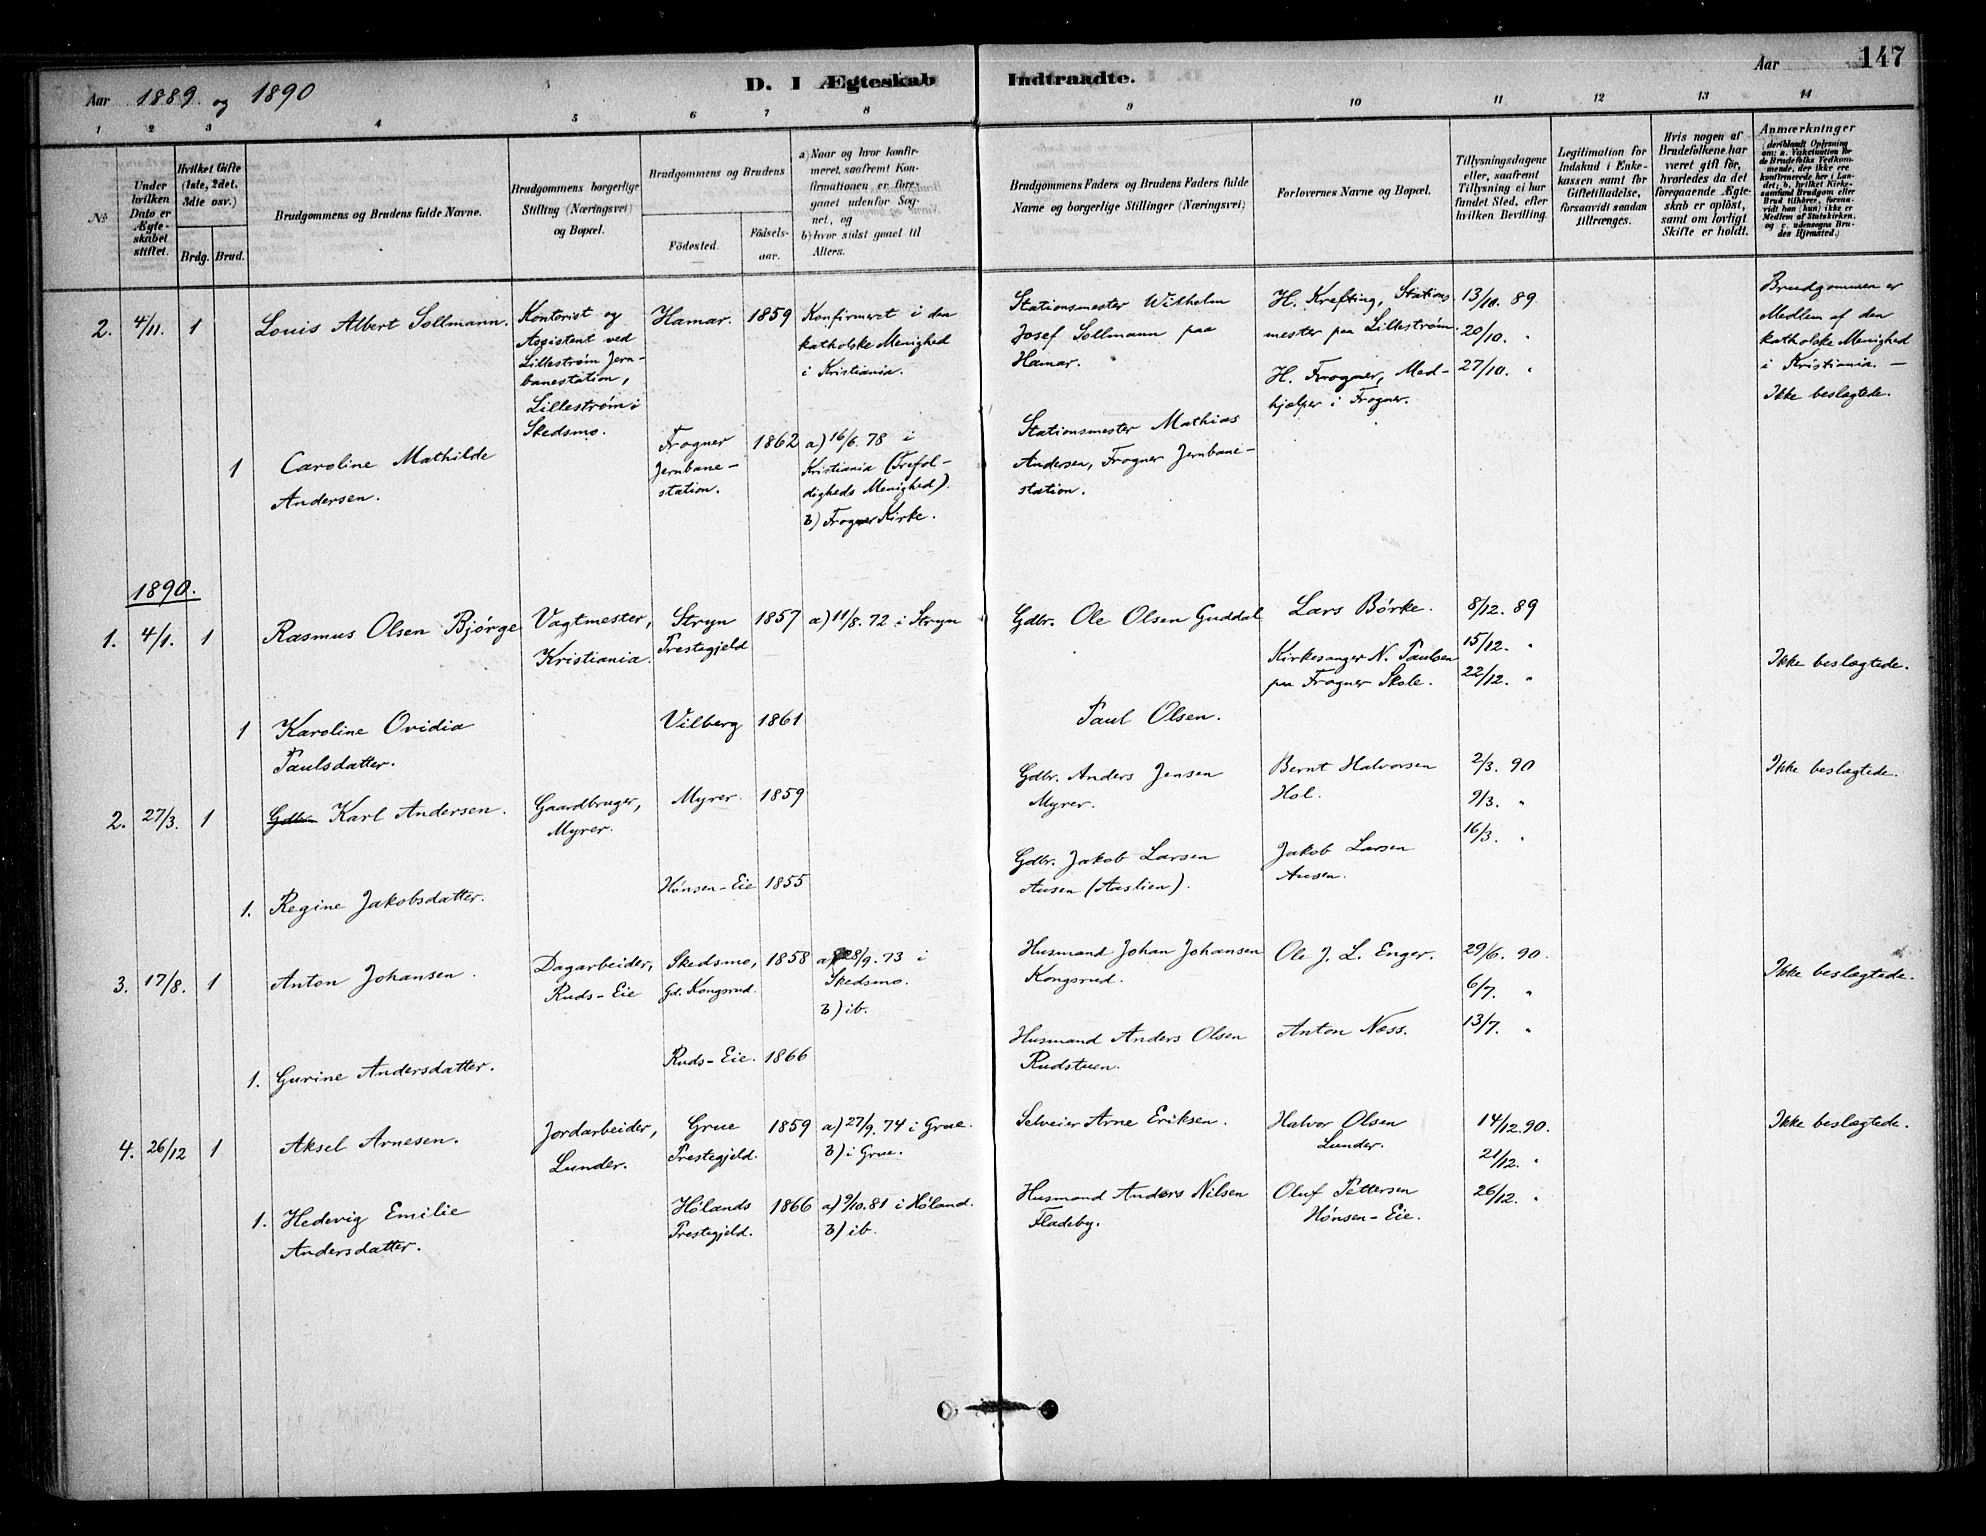 Aar 1889 og 1890
D. I Ægteskab Indtraadte.
Aar
147
1 2 3 4 5 6 7 8 9 10 11 12 13 14
No
Under hvilken Dato er Ægteskabet stiftet.
Hvilket Gifte (1ste, 2det, 3die osv.)
Brdg. Brud.
Brudgommens og Brudens fulde Navne.
Brudgommens borgerlige Stilling (Næringsvei) og Bopæl.
Brudgommens og Brudens
Födested.
Födselsaar.
a) Naar og hvor konfirmeret, saafremt Konfirmationen er foregaaet udenfor Sognet, og
b) hvor sidst gaaet til Alters.
Brudgommens Faders og Brudens Faders fulde Navne og borgerlige Stillinger (Næringsvei)
Forlovernes Navne og Bopæl.
Tillysningsdagene eller, saafremt Tillysning ei har fundet Sted, efter hvilken Bevilling.
Legitimation for Indskud i Enkekassen samt for Giftetilladelse, forsaavidt saadan tiltrænges.
Hvis nogen af Brudefolkene har været gift för, hvorledes da det foregaaende Ægteskab er oplöst, samt om lovligt Skifte er holdt.
Anmærkninger (deriblandt Oplysning om: a. Vakcination for de Brudefolks Vedkommende, der ikke ere konfirmerede her i Landet; b. hvilket Kirkesamfund Brudgom eller Brud tilhörer, forsaavidt han (hun) ikke er Medlem af Statskirken, og c. udensogns Brudes Hjemsted.)
2. 4/11. 1 Louis Albert Sollmann.
Kontorist og
Assistent ved
Lillestrøm Jern-
banestation,
Lillestrøm i
Skedsmo.
Hamar. 1859
Konfirmeret i den
katholske Menighed
i Kristiania.
Stationsmester Wilhelm
Josef Sollmann paa
Hamar.
H. Krefting, Stations
mester paa Lillestrøm.
H. Frogner, Med-
hjælper i Frogner.
13/10. 89
20/10. "
27/10. "
Brudgommen er
Medlem af den
katholske Menighed
i Kristiania. —
Ikke beslagtede.
1 Caroline Mathilde
Andersen.
Frogner
Jernbane-
station.
1862
a) 16/6. 78 i
Kristiania (Trefol-
digheds Menighed).
b) Frogner Kirke.
Stationsmester Mathias
Andersen, Frogner Jernbane-
station.
1890.
1. 4/1. 1 Rasmus Olsen Bjørge
Vagtmester,
Kristiania.
Stryn
Prestegjeld
1857
a) 11/8. 72 i Stryn
Gdbr. Ole Olsen Guddal
Lars Børke.
Kirkesanger N. Paulsen
paa Frogner Skole.
8/12. 89
15/12. "
22/12. "
Ikke beslægtede.
1 Karoline Ovidia
Paulsdatter.
Vilberg 1861
Paul Olsen.
2. 27/3. 1 Gdbr. Karl Andersen.
Gaardbruger,
Myrer.
Myrer. 1859
Gdbr. Anders Jensen
Myrer.
Bernt Halvorsen
Hol.
2/3. 90
9/3. "
16/3. "
Ikke beslægtede.
1. Regine Jakobsdatter.
Hønsen-Eie 1855
Gdbr. Jakob Larsen
Ausen (Aaslien).
Jakob Larsen
Ausen.
3. 17/8. 1 Anton Johansen.
Dagarbeider,
Ruds-Eie
Skedsmo,
Gd. Kongsrud.
1858
a) 28/9. 73 i
Skedsmo.
b) ib.
Husmand Johan Johansen
Kongsrud.
Ole J. L. Enger.
29/6. 90.
6/7. "
13/7. "
Ikke beslægtede.
1. Gurine Andersdatter.
Ruds-Eie. 1866
Husmand Anders Olsen
Rudstuen.
Anton Næss.
4. 26/12 1 Aksel Arnesen.
Jordarbeider,
Lunder.
Grue
Prestegjeld.
1859
a) 27/9. 74 i Grue.
b) i Grue.
Selveier Arne Eriksen.
Halvor Olsen
Lunder.
14/12. 90.
21/12. "
26/12. "
Ikke beslægtede.
1. Hedevig Emilie
Andersdatter.
Hølands
Prestegjeld.
1866
a) 9/10. 81 i Høland.
b) ib.
Husmand Anders Nilsen
Fladeby.
Oluf Pettersen
Hønsen-Eie.